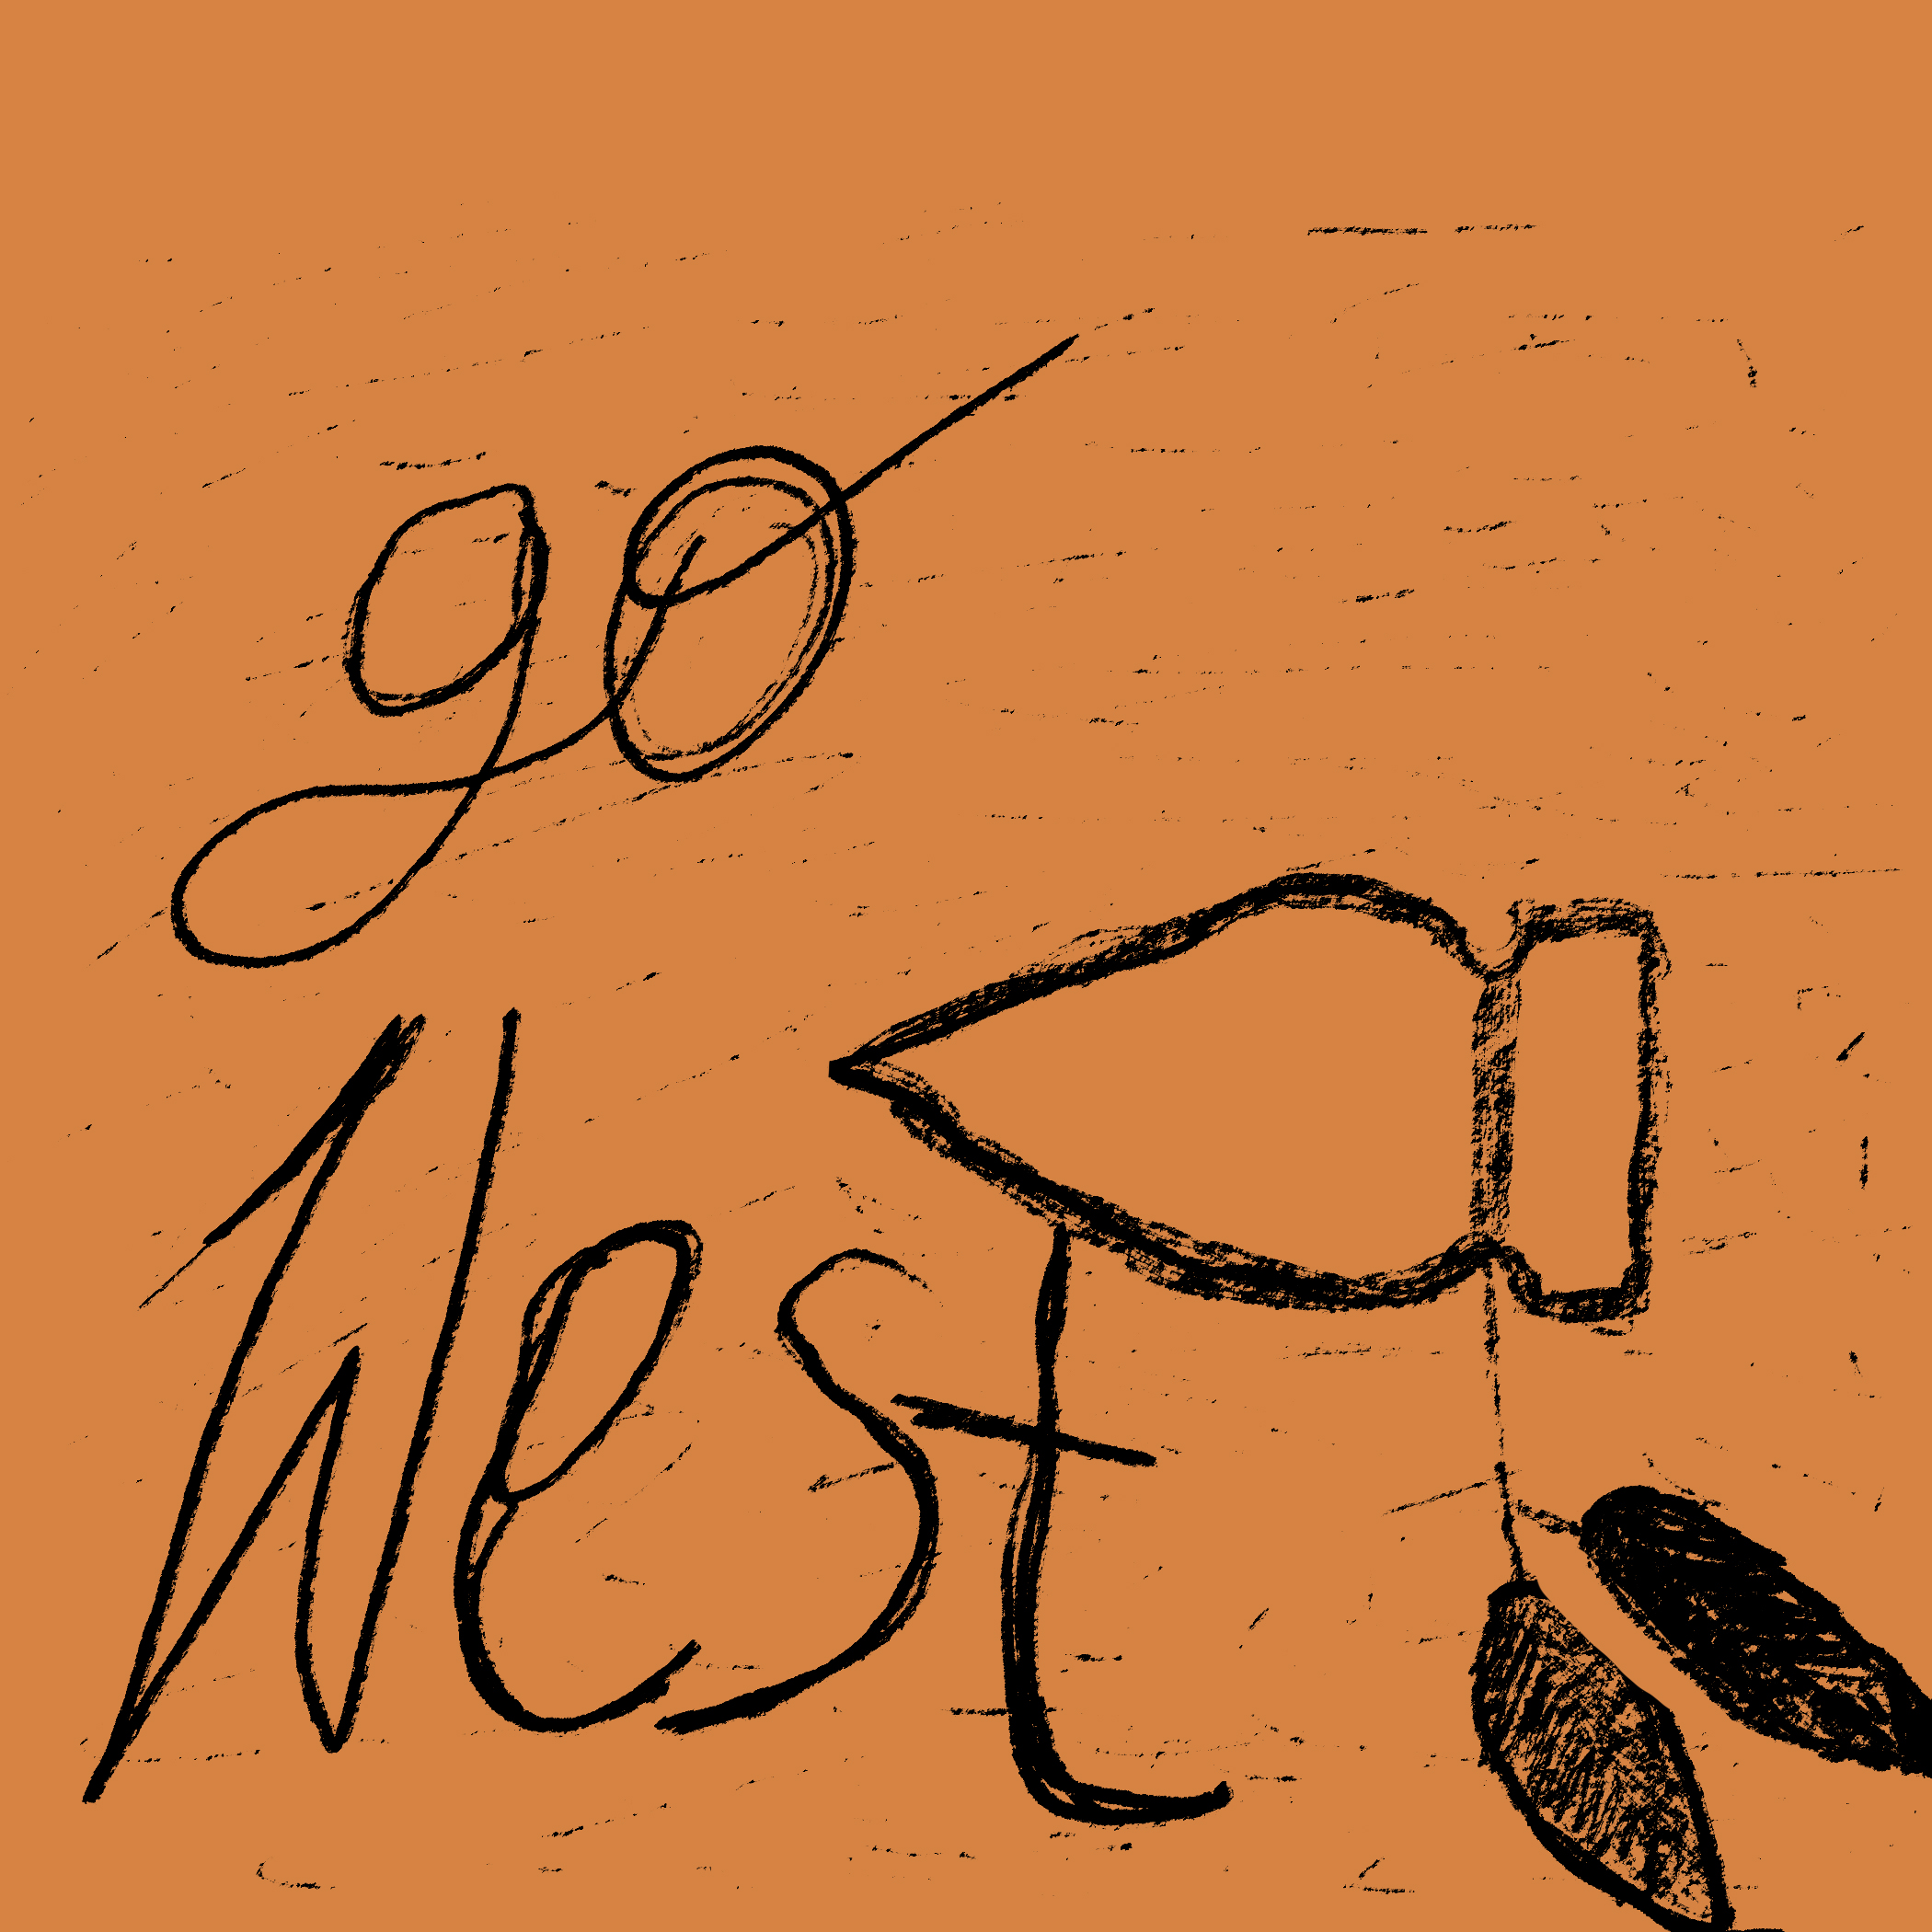 go
West